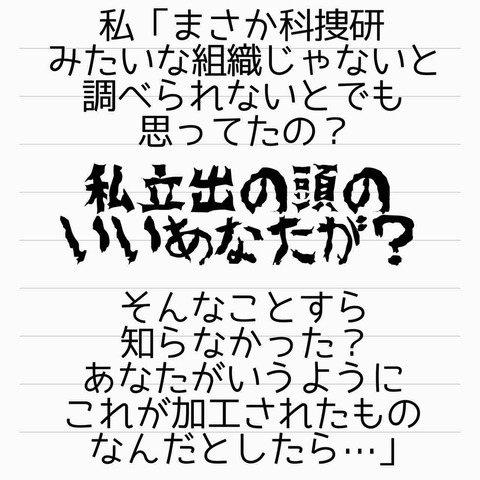 私「まさか科捜研
みたいな組織じゃないと
調べられないとでも
思ってたの？
私立出の頭の
いいあなたが？
そんなことすら
知らなかった？
あなたがいうように
これが加工されたもの
なんだとしたら…」